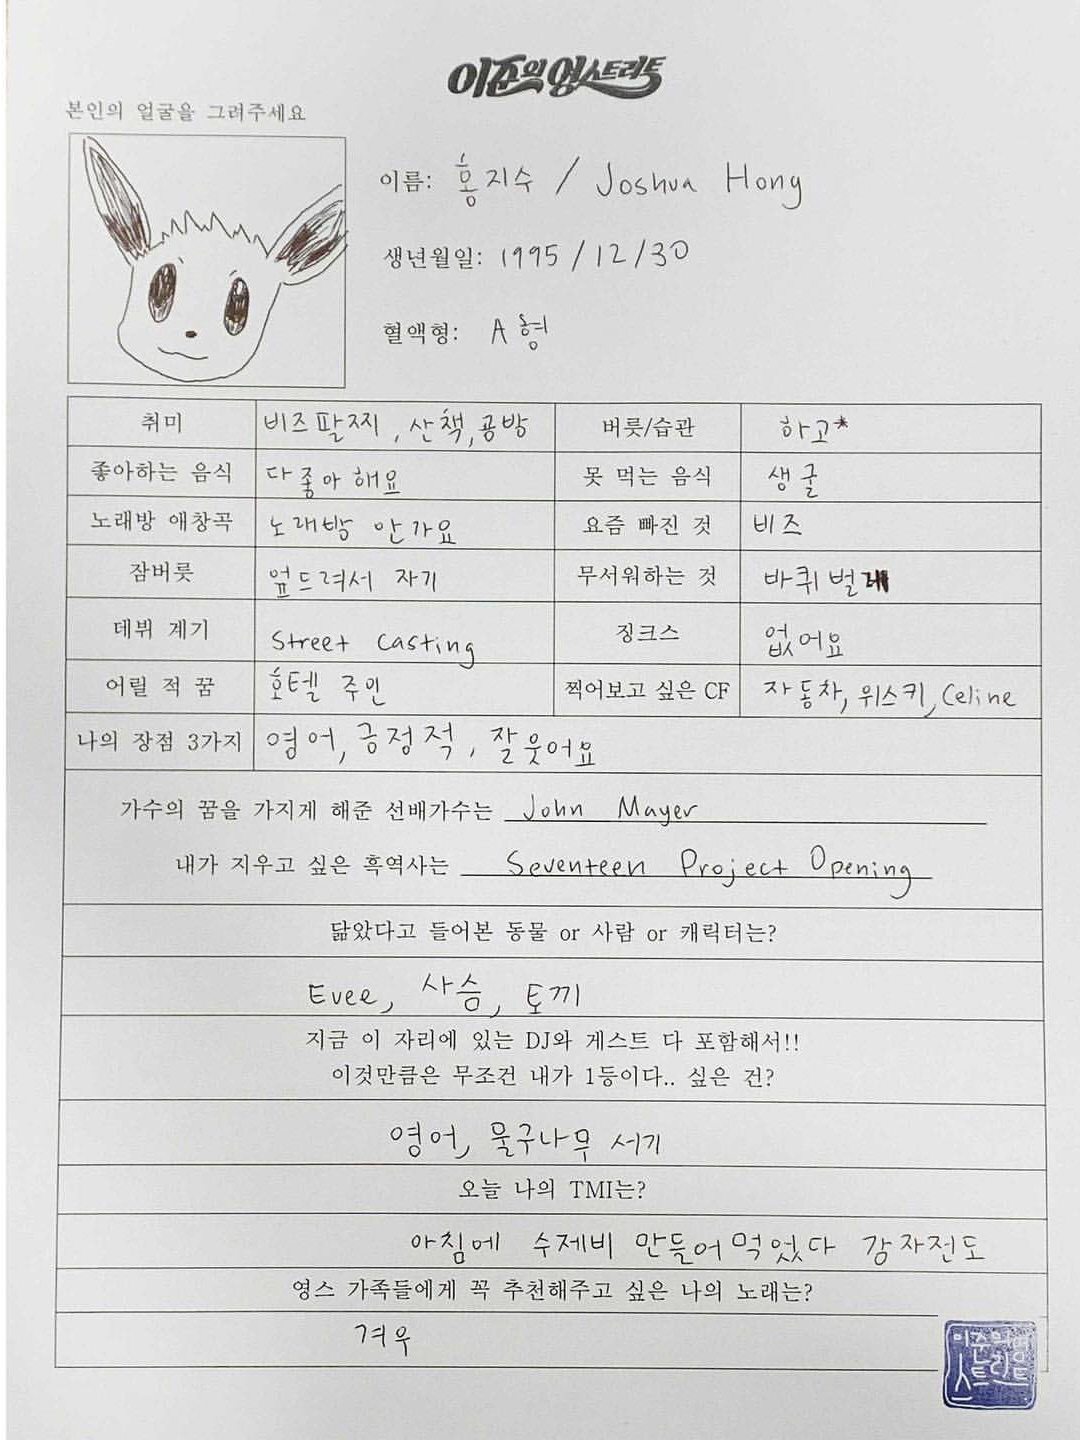 이준의 영스트리트
본인의 얼굴을 그려주세요
이름: 홍지수 / Joshua Hong
생년월일: 1995/12/30
혈액형: A형
취미 비즈팔찌, 산책, 공방 버릇/습관 하고*
좋아하는 음식 다 좋아해요 못 먹는 음식 생굴
노래방 애창곡 노래방 안가요 요즘 빠진 것 비즈
잠버릇 엎드려서 자기 무서워하는 것 바퀴벌레
데뷔 계기 Street Casting 징크스 없어요
어릴 적 꿈 호텔 주인 찍어보고 싶은 CF 자동차, 위스키, Celine
나의 장점 3가지 영어, 긍정적, 잘웃어요
가수의 꿈을 가지게 해준 선배가수는 John Mayer
내가 지우고 싶은 흑역사는 Seventeen Project Opening
닮았다고 들어본 동물 or 사람 or 캐릭터는?
Evee, 사슴, 토끼
지금 이 자리에 있는 DJ와 게스트 다 포함해서!!
이것만큼은 무조건 내가 1등이다.. 싶은 건?
영어, 물구나무 서기
오늘 나의 TMI는?
아침에 수제비 만들어먹었다 감자전도
영스 가족들에게 꼭 추천해주고 싶은 나의 노래는?
겨우
이준의영
스트리트